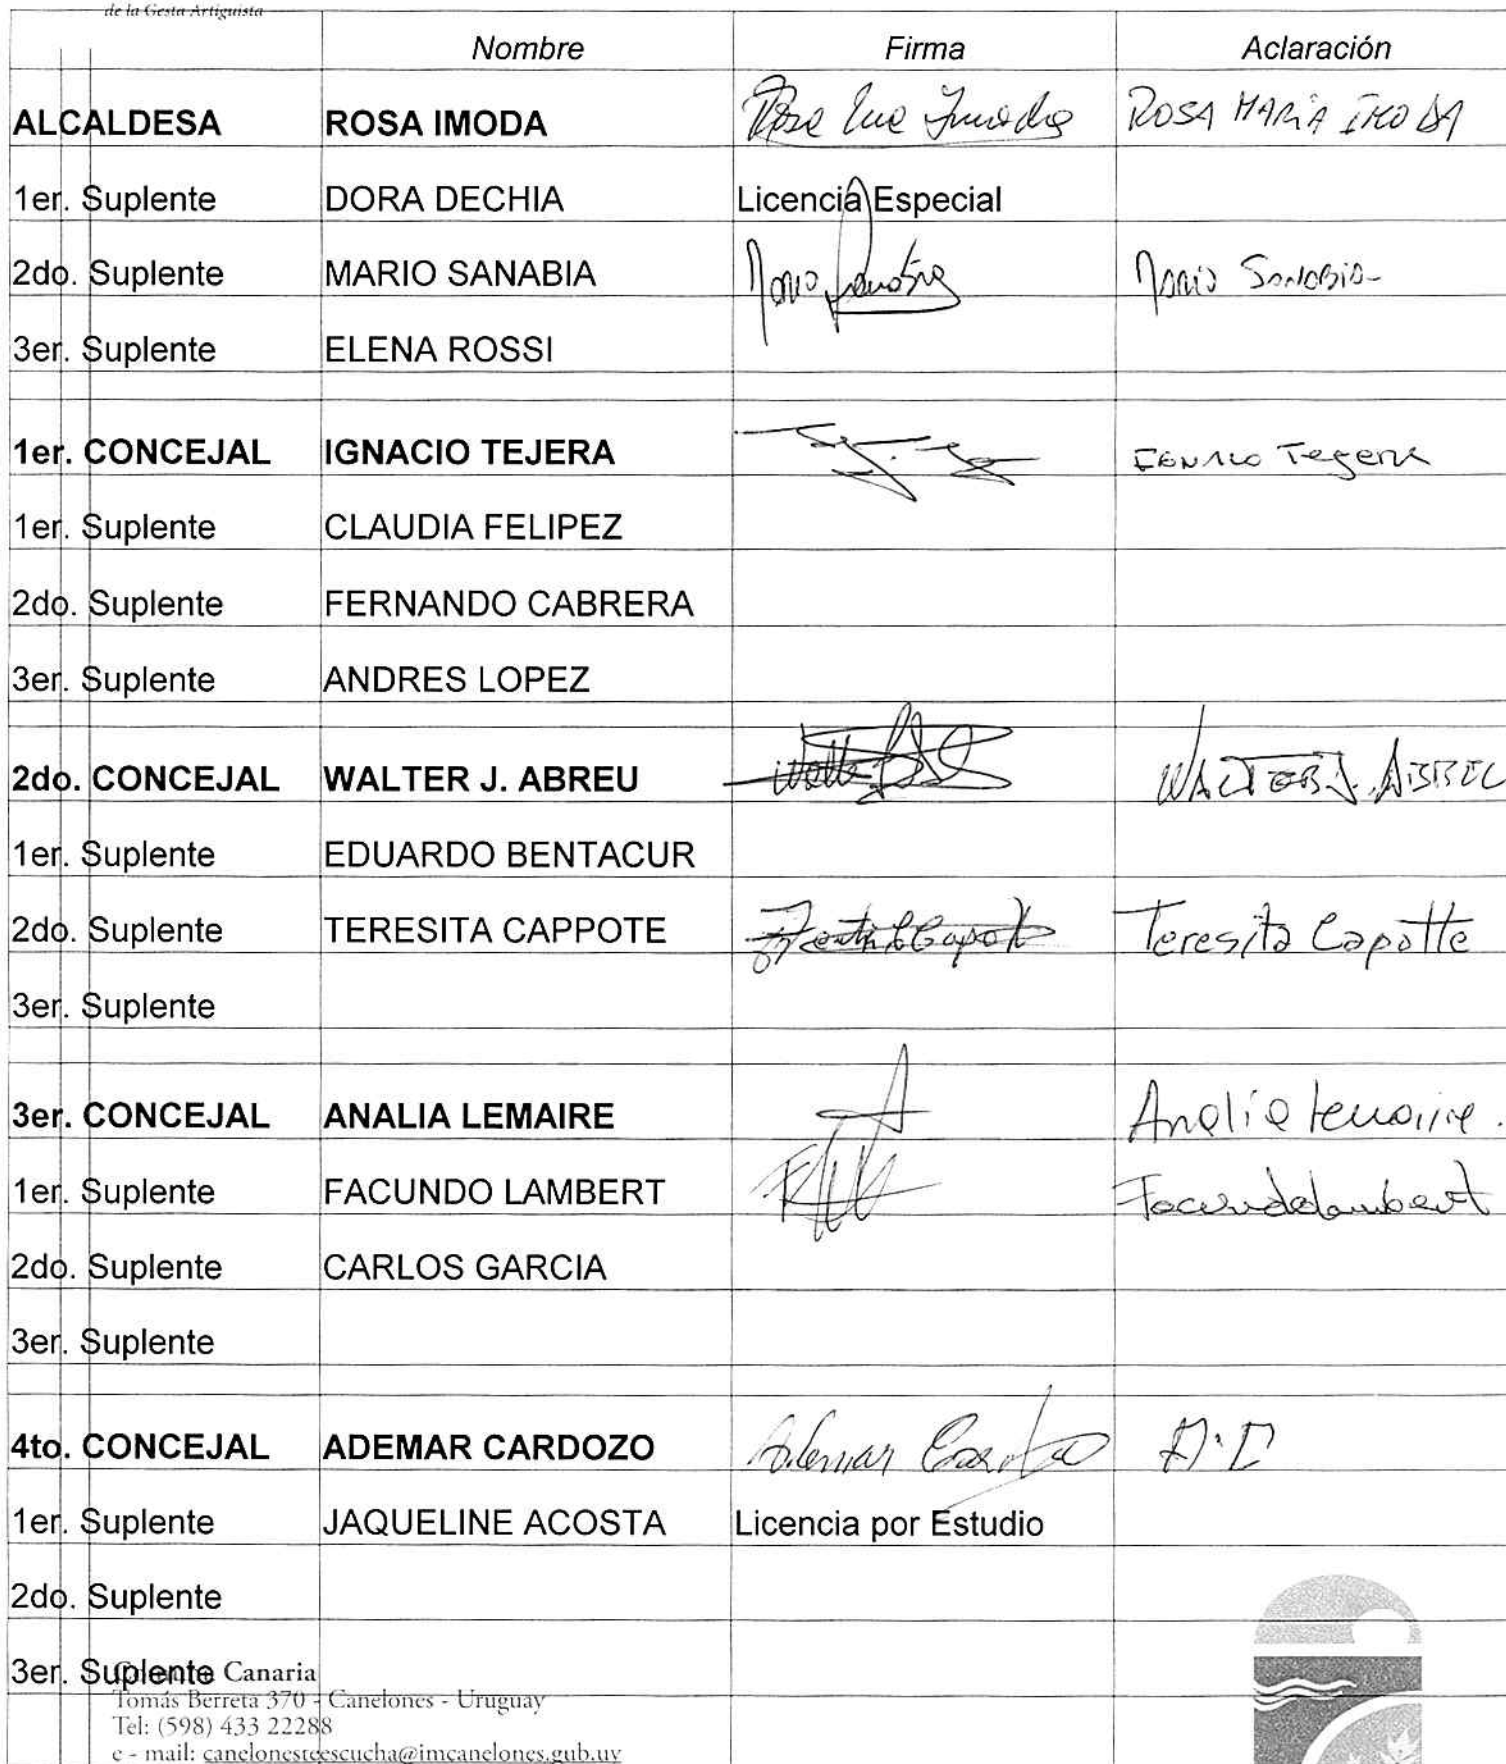 de la Gesta Artiguista
Nombre Firma Aclaración
ALCALDESA ROSA IMODA Rosa Imoda ROSA MARÍA IMODA
1er. Suplente DORA DECHIA Licencia Especial
2do. Suplente MARIO SANABIA Mario Sanabia Mario Sanabia
3er. Suplente ELENA ROSSI
1er. CONCEJAL IGNACIO TEJERA Ignacio Tejera
1er. Suplente CLAUDIA FELIPEZ
2do. Suplente FERNANDO CABRERA
3er. Suplente ANDRES LOPEZ
2do. CONCEJAL WALTER J. ABREU WALTER J. ABREU
1er. Suplente EDUARDO BENTACUR
2do. Suplente TERESITA CAPPOTE Teresita Capotte
3er. Suplente
3er. CONCEJAL ANALIA LEMAIRE Analia Lemaire.
1er. Suplente FACUNDO LAMBERT Facundo Lambert
2do. Suplente CARLOS GARCIA
3er. Suplente
4to. CONCEJAL ADEMAR CARDOZO Ademar Cardozo A.C
1er. Suplente JAQUELINE ACOSTA Licencia por Estudio
2do. Suplente
3er. Suplente
Canaria
Tomás Berreta 370 - Canelones - Uruguay
Tel: (598) 433 22288
e - mail: canelonesteescucha@imcanelones.gub.uy